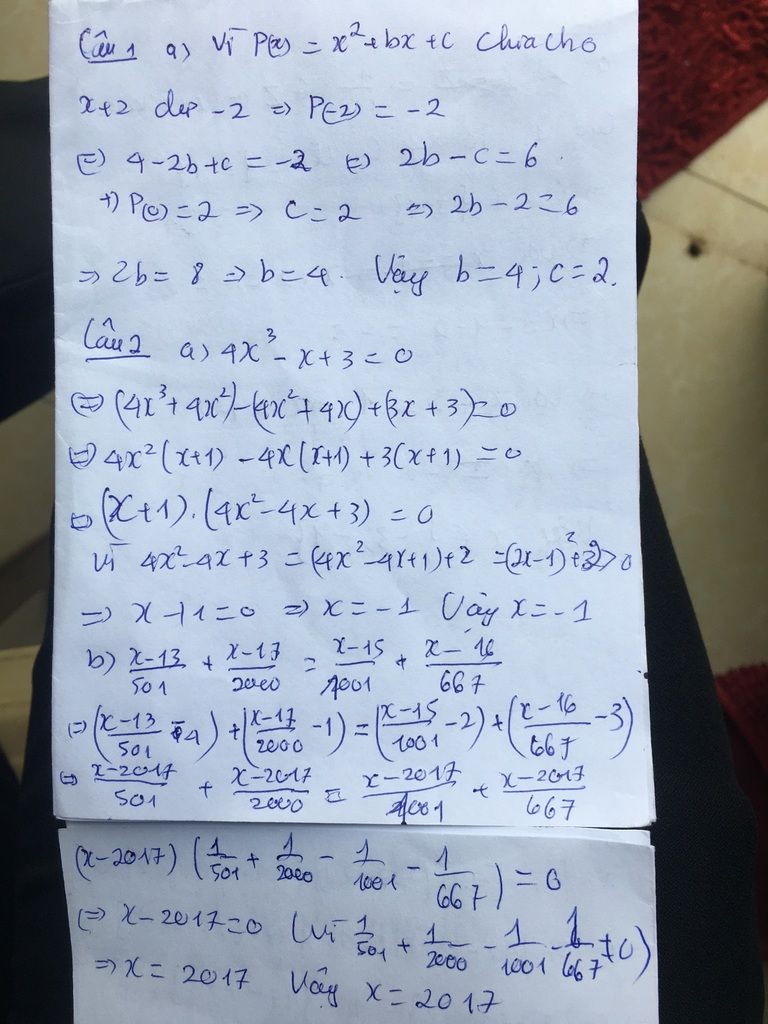 Câu 1 a) Vì P(x) = x² + bx + c chia cho
x+2 dư -2 => P(-2) = -2
<=> 4-2b+c = -2 <=> 2b-c=6.
+) P(0)=2 => c=2 => 2b-2=6
=> 2b= 8 => b=4. Vậy b=4; c=2.
Câu 2 a) 4x³ - x+3=0
<=> (4x³+4x²)-(4x²+4x)+(3x+3)=0
<=> 4x²(x+1) - 4x(x+1)+3(x+1) =0
<=> (x+1).(4x²-4x+3) =0
Vì 4x²-4x+3 =(4x²-4x+1)+2 =(2x-1)²+2>0
=> x+1=0 => x=-1 Vậy x=-1
b) (x-13)/501 + (x-17)/2000 = (x-15)/1001 + (x-16)/667
=> ((x-13)/501 -4) + ((x-17)/2000 -1) = ((x-15)/1001 -2) + ((x-16)/667 -3)
=> (x-2017)/501 + (x-2017)/2000 = (x-2017)/1001 + (x-2017)/667
(x-2017) (1/501 + 1/2000 - 1/1001 - 1/667) = 0
<=> x-2017=0 (Vì 1/501 + 1/2000 - 1/1001 - 1/667 ≠0)
=> x= 2017 Vậy x=2017